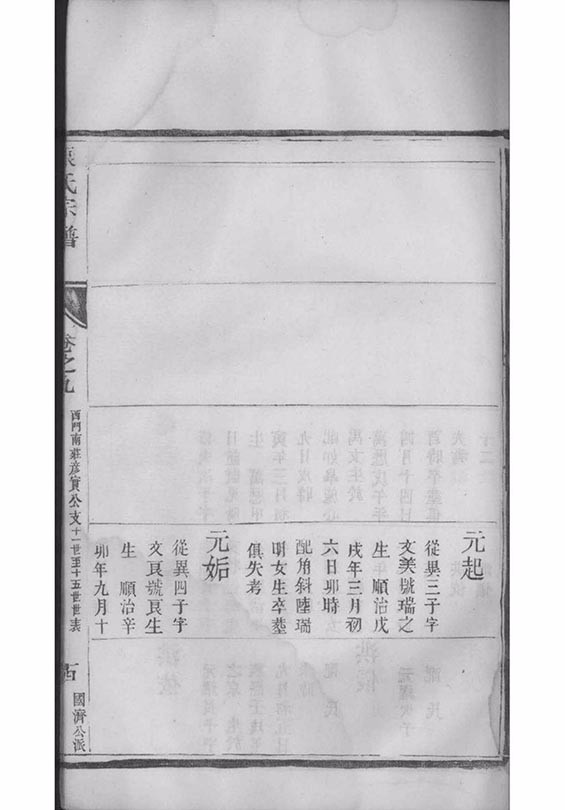 元起
從異三子字
文美號瑞之
生 順治戊
戌年三月初
六日卯時
配角斜陸瑞
明女生卒塟
俱失考
元姤
從異四子字
文良號良生
生 順治辛
卯年九月十
氏宗譜
卷之九
西門南莊彥賓公支十一世至十五世世表
國濟公派